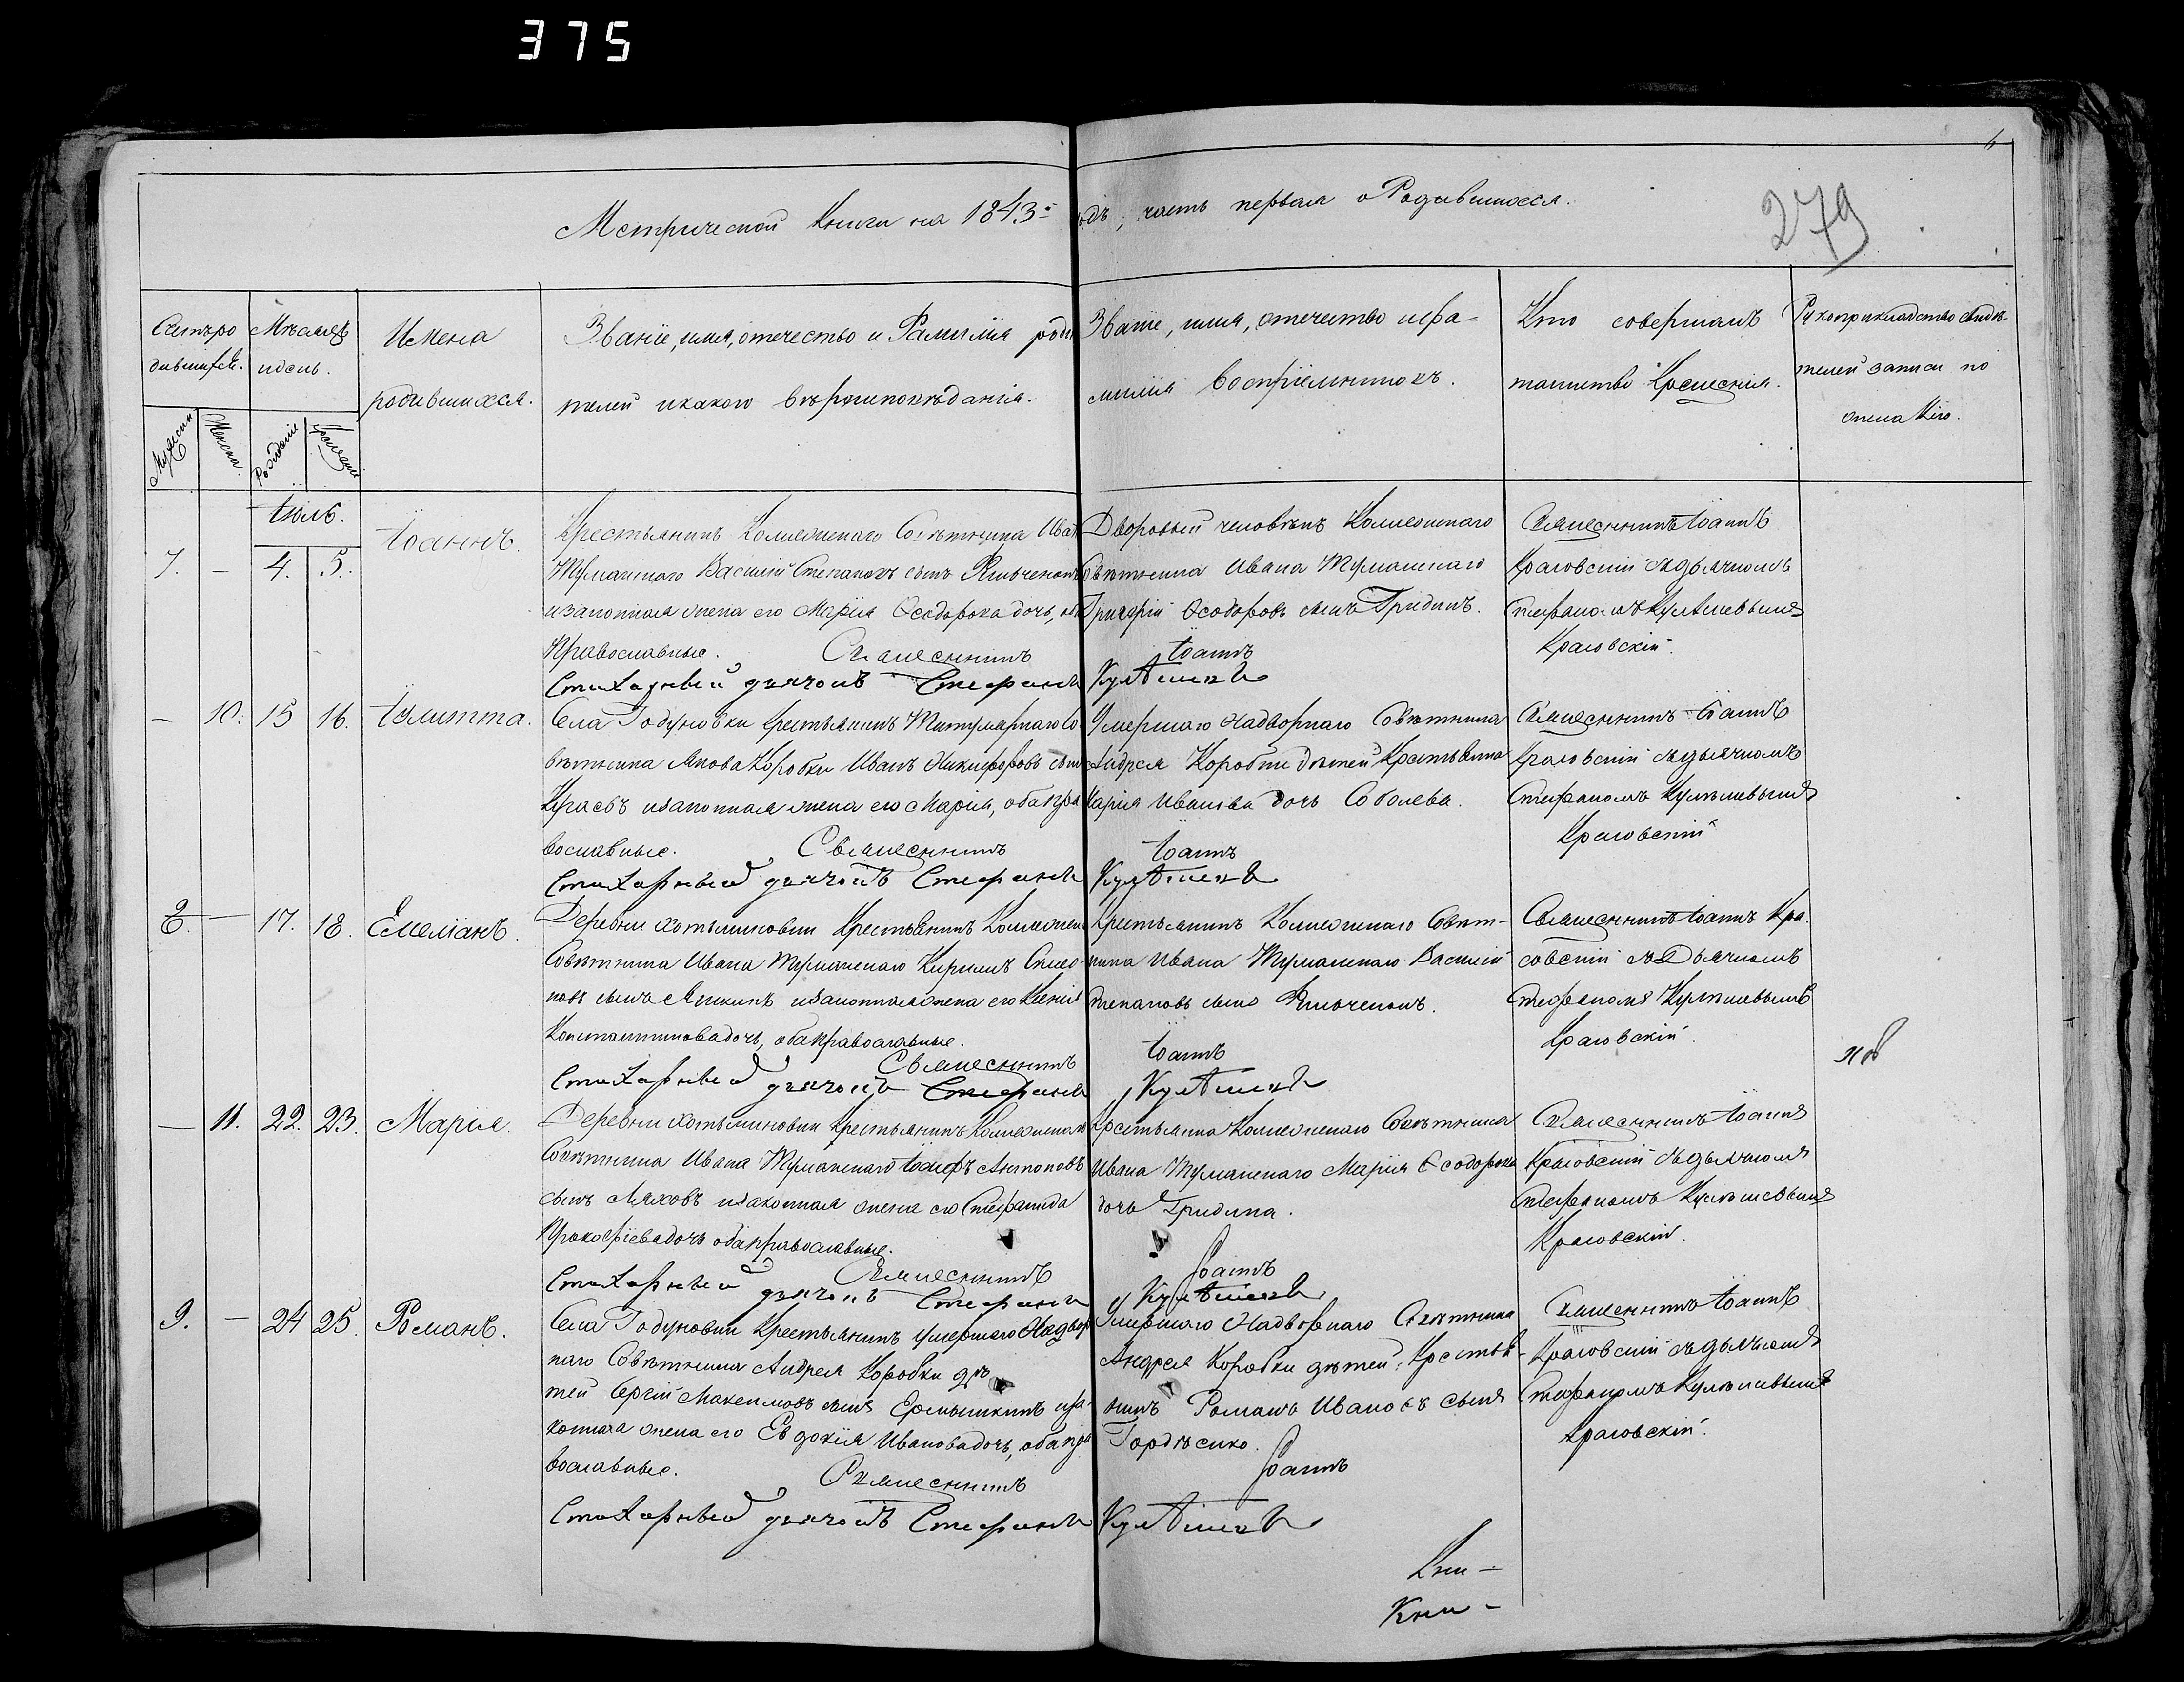 375
6
279
Метрической Книги на 1843й
одъ, часть первая о Родившихся.
Счетъ ро
дившихся.
Мѣсяцъ
и день.
Имена
родившихся.
Званіе, имя, отечество и Фамилія роди
телей и какого вѣроисповѣданія.
Званіе, имя, отечество и фа-
милія Воспріемниковъ.
Кто совершалъ
таинство Крещенія.
Рукоприкладство свидѣ-
телей записи по
Мужеска
Женска.
Рожденіе
Іюль.
7. — 4. 5. Іоаннъ.
Крестьянинъ Коллежскаго Совѣтника Иван
Туманскаго Василій Степановъ сынъ
и законная жена его Марія Ѳеодорова дочь, оба
Православные. Священникъ
Стихарный дьячокъ Стефанъ
Дворовый человѣкъ Коллежскаго
Совѣтника Ивана Туманскаго
Григорій Ѳеодоровъ сынъ Гридинъ.
Іоаннъ
Кулѣшевъ
Священникъ Іоаннъ
Красовскій съ дьячкомъ
Стефаномъ Кулѣшевымъ
Красовскій.
— 10. 15 16. Іулитта.
Села Годуновки крестьянинъ Титулярнаго Со
вѣтника Якова Коробки Иванъ Никифоровъ сынъ
и законная жена его Марія, оба пра
вославные. Священникъ
Стихарный дьячокъ Стефанъ
Умершаго Надворнаго Совѣтника
Андрея Коробки дѣтей Крестьянка
Марія Иванова дочь Соболева.
Іоаннъ
Кулѣшевъ
Священникъ Іоаннъ
Красовскій съ дьячкомъ
Стефаномъ Кулѣшевымъ
Красовскій
8. — 17. 18. Емеліанъ.
Деревни Хотьминовки Крестьянинъ Коллежск
Совѣтника Ивана Туманскаго Кирилъ
новъ сынъ и законная жена его Ксенія
Константинова дочь, оба православные.
Священникъ
Стихарный дьячокъ Стефанъ
Крестьянинъ Коллежскаго Совѣт-
ника Ивана Туманскаго Василій
Степановъ сынъ
Іоаннъ
Кулѣшевъ
Священникъ Іоаннъ Кра.
совскій съ Дьячкомъ
Стефаномъ Кулѣшевымъ
Красовскій.
— 11. 22. 23. Марія.
Деревни Хотьминовки Крестьянинъ Коллежскаго
Совѣтника Ивана Туманскаго Іосифъ Антоновъ
сынъ Ляховъ и законная жена его Стефанида
Прокофіева дочь оба православные.
Священникъ
Стихарный дьячокъ Стефанъ
Крестьянка Коллежскаго Совѣтника
Ивана Туманскаго Марія Ѳеодорова
дочь Гридина.
Іоаннъ
Кулѣшевъ
Священникъ Іоаннъ
Красовскій съ дьячкомъ
Стефаномъ Кулѣшевымъ
Красовскій.
9. — 24 25. Романъ.
Села Годуновки Крестьянинъ умершаго Надвор
наго Совѣтника Андрея Коробки дѣ
тей Сергій Максимовъ сынъ и за-
конная жена его Евдокія Иванова дочь, оба пра
вославные. Священникъ
Стихарный дьячокъ Стефанъ
Умершаго Надворнаго Совѣтника
Андрея Коробки дѣтей Крестья-
нинъ Романъ Ивановъ сынъ
Гордѣенко.
Іоаннъ
Кулѣшевъ
Священникъ Іоаннъ
Красовскій съ дьячкомъ
Стефаномъ Кулѣшевымъ
Красовскій.
Кни-
Кни-